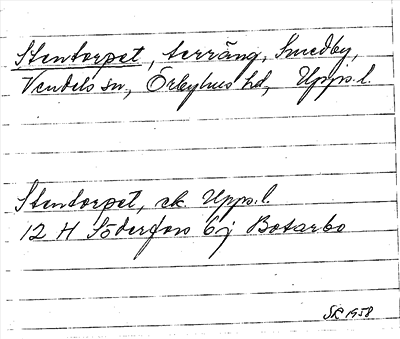 Stentorpet, terräng, Smedby,
Vendels sn, Örbyhus hd, Upps.l.
Stentorpet, ek. Upps.l.
12 H Söderfors 6j Botarbo
SR 1958